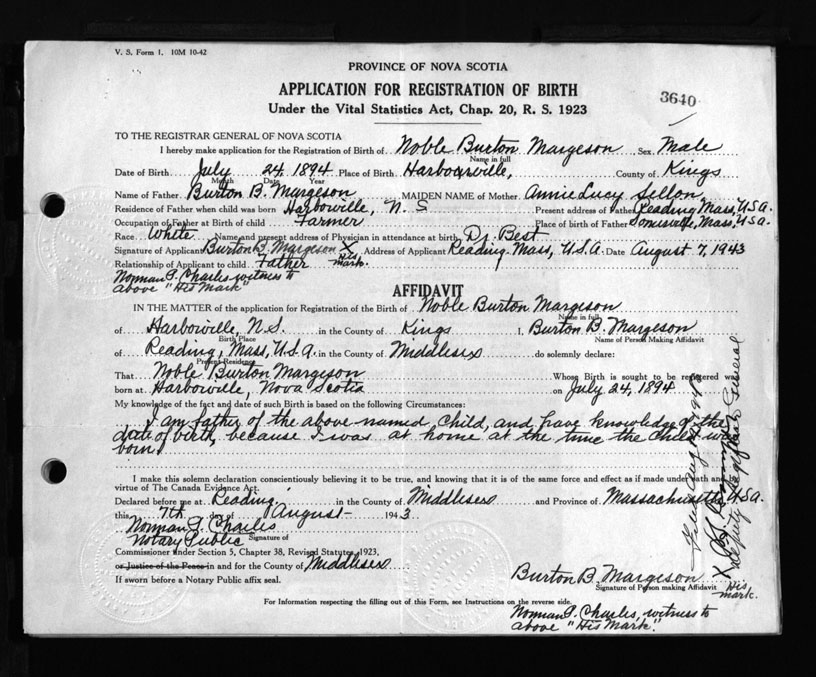 V. S. Form 1. 10M 10-42
PROVINCE OF NOVA SCOTIA
APPLICATION FOR REGISTRATION OF BIRTH
Under the Vital Statistics Act, Chap. 20, R. S. 1923
3640
TO THE REGISTRAR GENERAL OF NOVA SCOTIA
I hereby make application for the Registration of Birth of Noble Burton Margeson Sex Male
Name in full
Date of Birth July 24 1894 Place of Birth Harbourville, County of Kings
Month Date Year
Name of Father Burton B. Margeson MAIDEN NAME of Mother Annie Lucy Sellon
Residence of Father when child was born Harbourville, N. S Present address of Father Reading Mass, U.S.A.
Occupation of Father at Birth of child Farmer Place of birth of Father Somerville, Mass, U.S.A.
Race White Name and present address of Physician in attendance at birth Dr. Best
Signature of Applicant Burton B. Margeson X Address of Applicant Reading Mass, U.S.A. Date August 7, 1943
His mark.
Relationship of Applicant to child Father
Norman P. Charles, witness to
above "His Mark"
AFFIDAVIT
IN THE MATTER of the application for Registration of the Birth of Noble Burton Margeson
Name in full
of Harbourville, N.S. in the County of Kings I, Burton B. Margeson
Birth Place Name of Person Making Affidavit
of Reading, Mass, U.S.A. in the County of Middlesex do solemnly declare:
Present Residence
That Noble Burton Margeson Whose Birth is sought to be registered was
born at Harbourville, Nova Scotia on July 24, 1894
My knowledge of the fact and date of such Birth is based on the following Circumstances:
I am father of the above named, child, and have knowledge of the
date of birth, because I was at home at the time the child was
born
I make this solemn declaration conscientiously believing it to be true, and knowing that it is of the same force and effect as if made under oath and
virtue of The Canada Evidence Act.
Declared before me at Reading in the County of Middlesex and Province of Massachusetts U.S.A.
this 7th day of August 1943.
Norman P. Charles
Notary Public Signature of
Commissioner under Section 5, Chapter 38, Revised Statutes, 1923,
or Justice of the Peace in and for the County of Middlesex
If sworn before a Notary Public affix seal.
Burton B. Margeson X
Signature of Person making Affidavit His mark.
For Information respecting the filling out of this Form, see Instructions on the reverse side.
Norman P. Charles, witness to
above "His Mark".
Deputy Registrar General